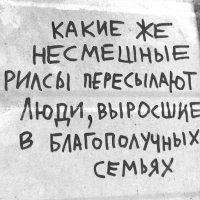 КАКИЕ ЖЕ
НЕСМЕШНЫЕ
РИЛСЫ ПЕРЕСЫЛАЮТ
ЛЮДИ, ВЫРОСШИЕ
В БЛАГОПОЛУЧНЫХ
СЕМЬЯХ